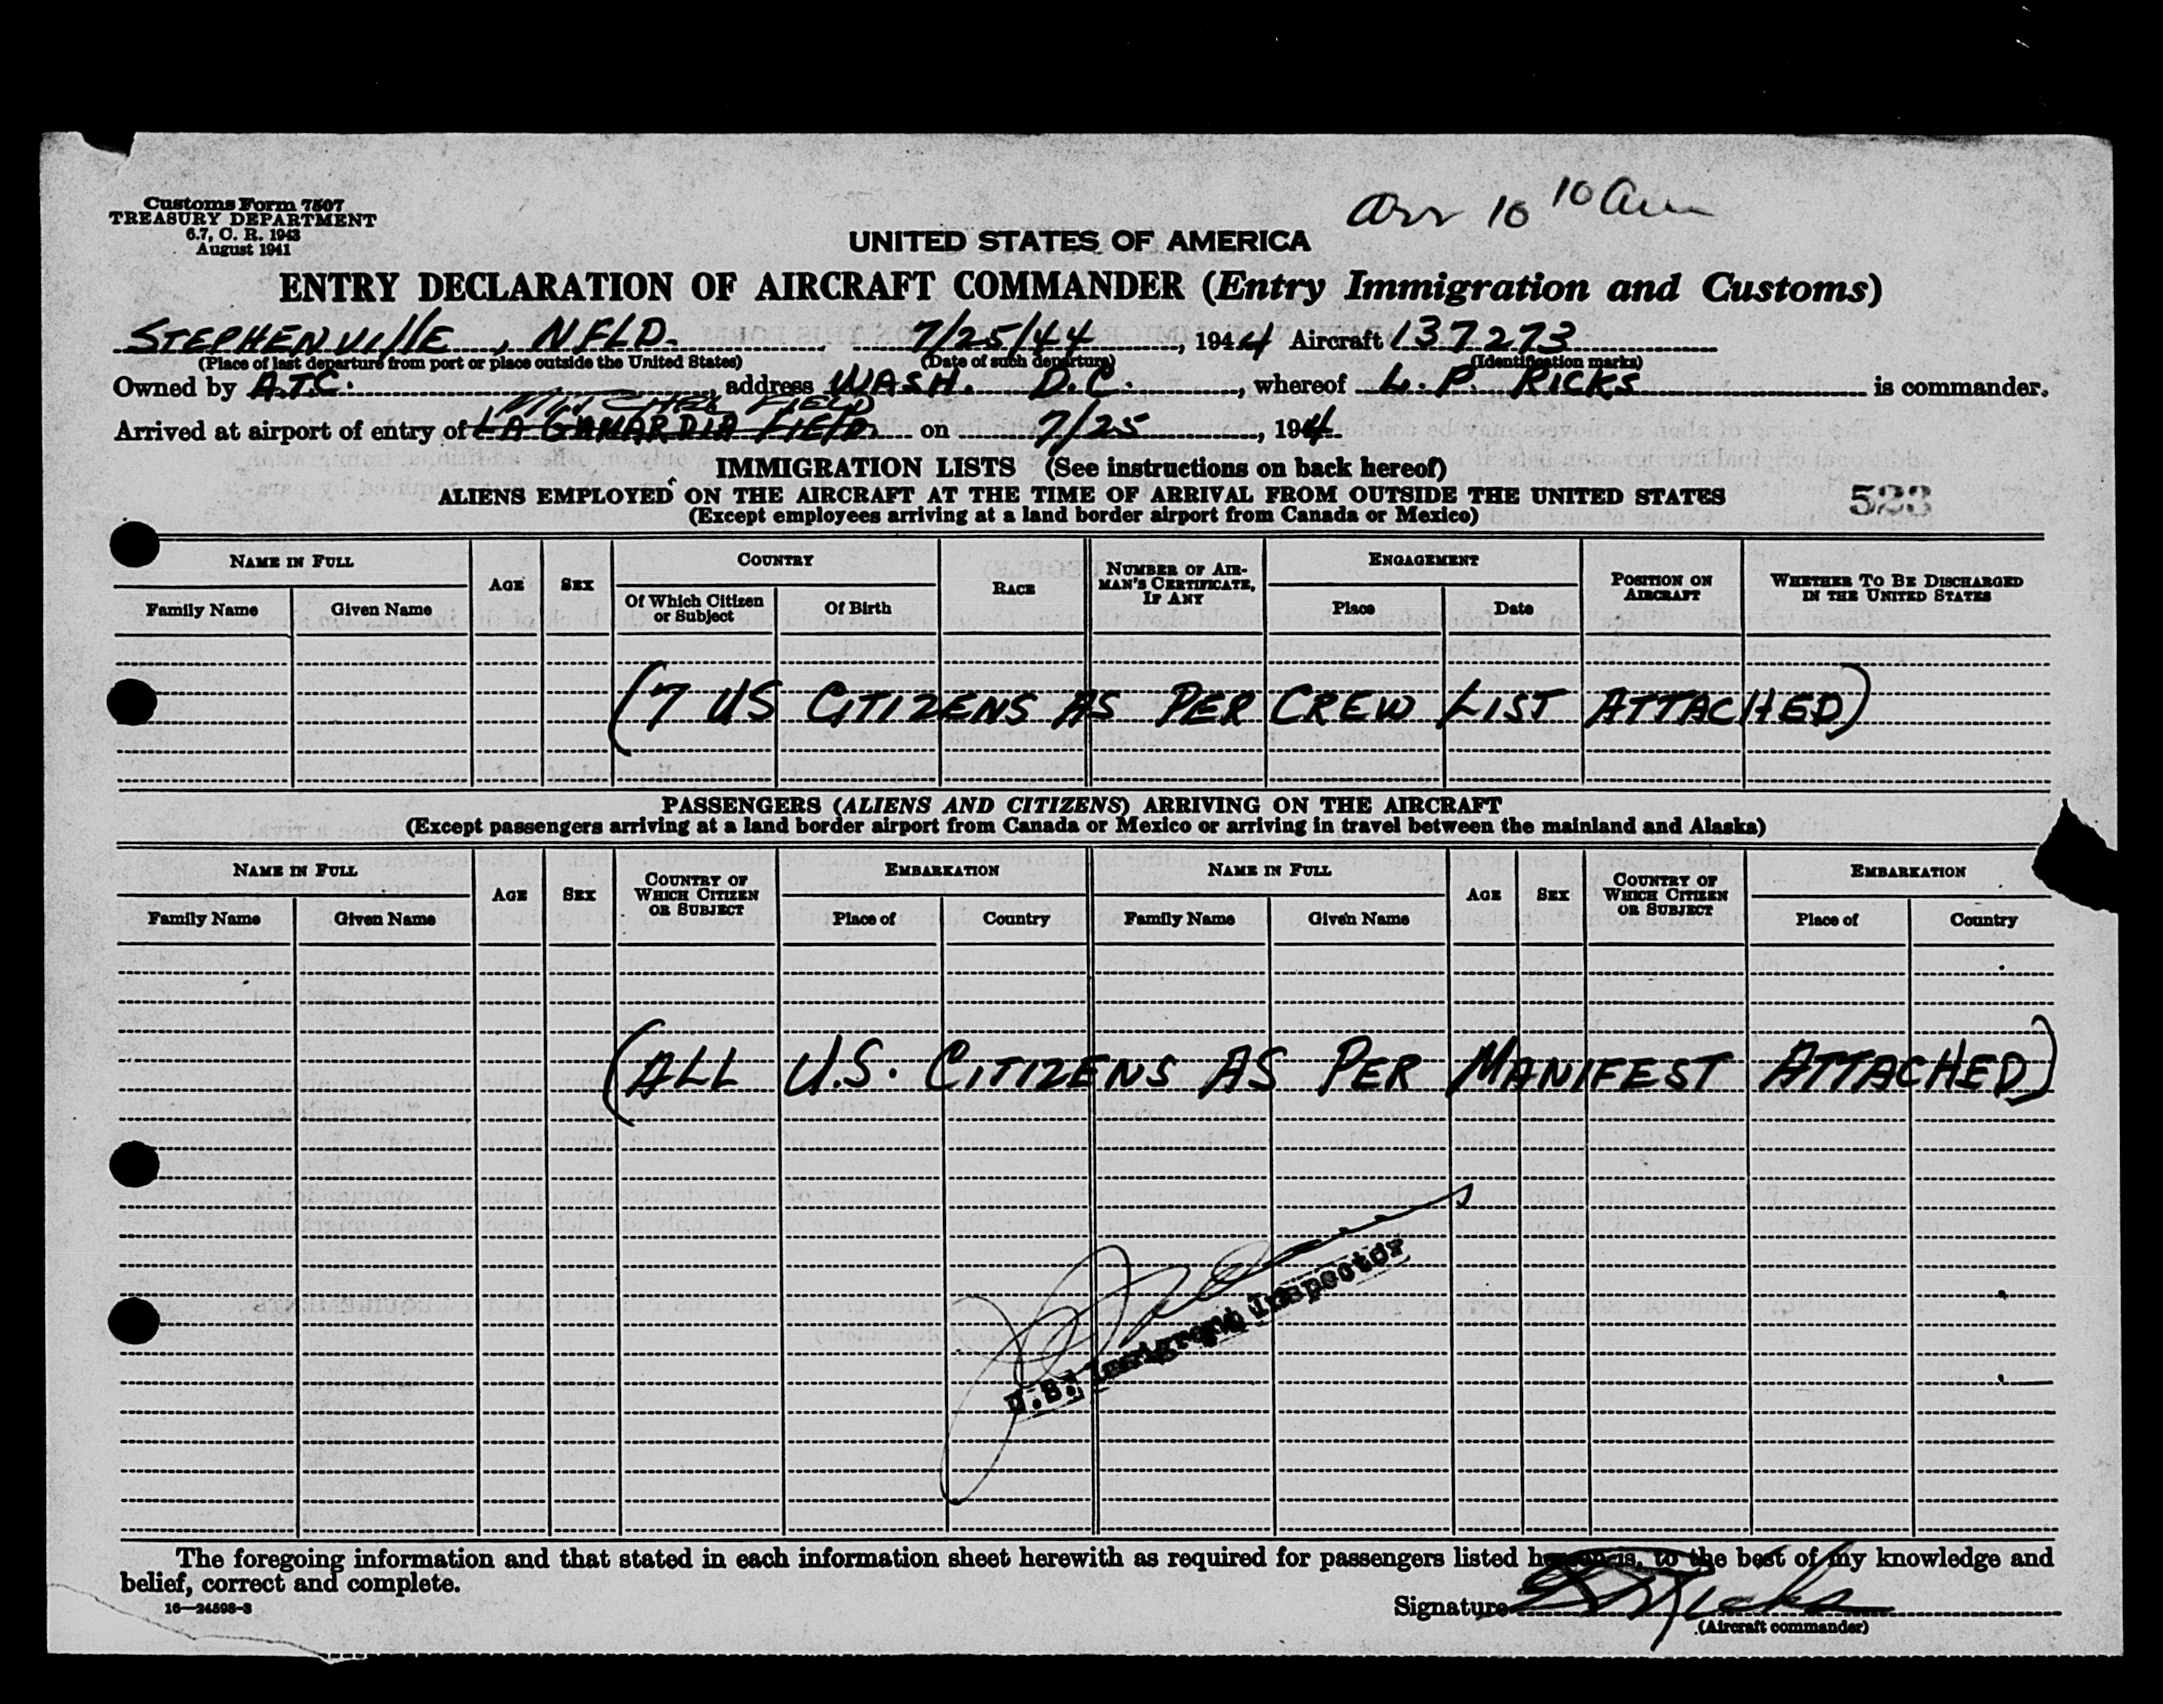 Customs Form 7507
TREASURY DEPARTMENT
6.7, C. R. 1943
August 1941
Arr 10 10 am
UNITED STATES OF AMERICA
ENTRY DECLARATION OF AIRCRAFT COMMANDER (Entry Immigration and Customs)
STEPHENVIllE, NFLD. 7/25/44, 1944 Aircraft 137273
(Place of last departure from port or place outside the United States) (Date of such departure) (Identification marks)
Owned by A.T.C., address WASH. D.C., whereof L. P. RICKS is commander.
MITCHEL FIELD
Arrived at airport of entry of LA GAUARDIA FIElD on 7/25, 1944
IMMIGRATION LISTS (See instructions on back hereof)
ALIENS EMPLOYED ON THE AIRCRAFT AT THE TIME OF ARRIVAL FROM OUTSIDE THE UNITED STATES
523
(Except employees arriving at a land border airport from Canada or Mexico)
NAME IN FULL AGE SEX COUNTRY RACE NUMBER OF AIRMAN'S CERTIFICATE, IF ANY ENGAGEMENT POSITION ON AIRCRAFT WHETHER TO BE DISCHARGED IN THE UNITED STATES
Family Name Given Name Of Which Citizen or Subject Of Birth Place Date
(7 US CITIZENS AS PER CREW LIST ATTACHED)
PASSENGERS (ALIENS AND CITIZENS) ARRIVING ON THE AIRCRAFT
(Except passengers arriving at a land border airport from Canada or Mexico or arriving in travel between the mainland and Alaska)
NAME IN FULL AGE SEX COUNTRY OF WHICH CITIZEN OR SUBJECT EMBARKATION NAME IN FULL AGE SEX COUNTRY OF WHICH CITIZEN OR SUBJECT EMBARKATION
Family Name Given Name Place of Country Family Name Given Name Place of Country
(ALL U.S. CITIZENS AS PER MANIFEST ATTACHED)
U.S. Immigrant Inspector
The foregoing information and that stated in each information sheet herewith as required for passengers listed hereon is, to the best of my knowledge and
belief, correct and complete.
16—24598-3
Signature L P Ricks
(Aircraft commander)